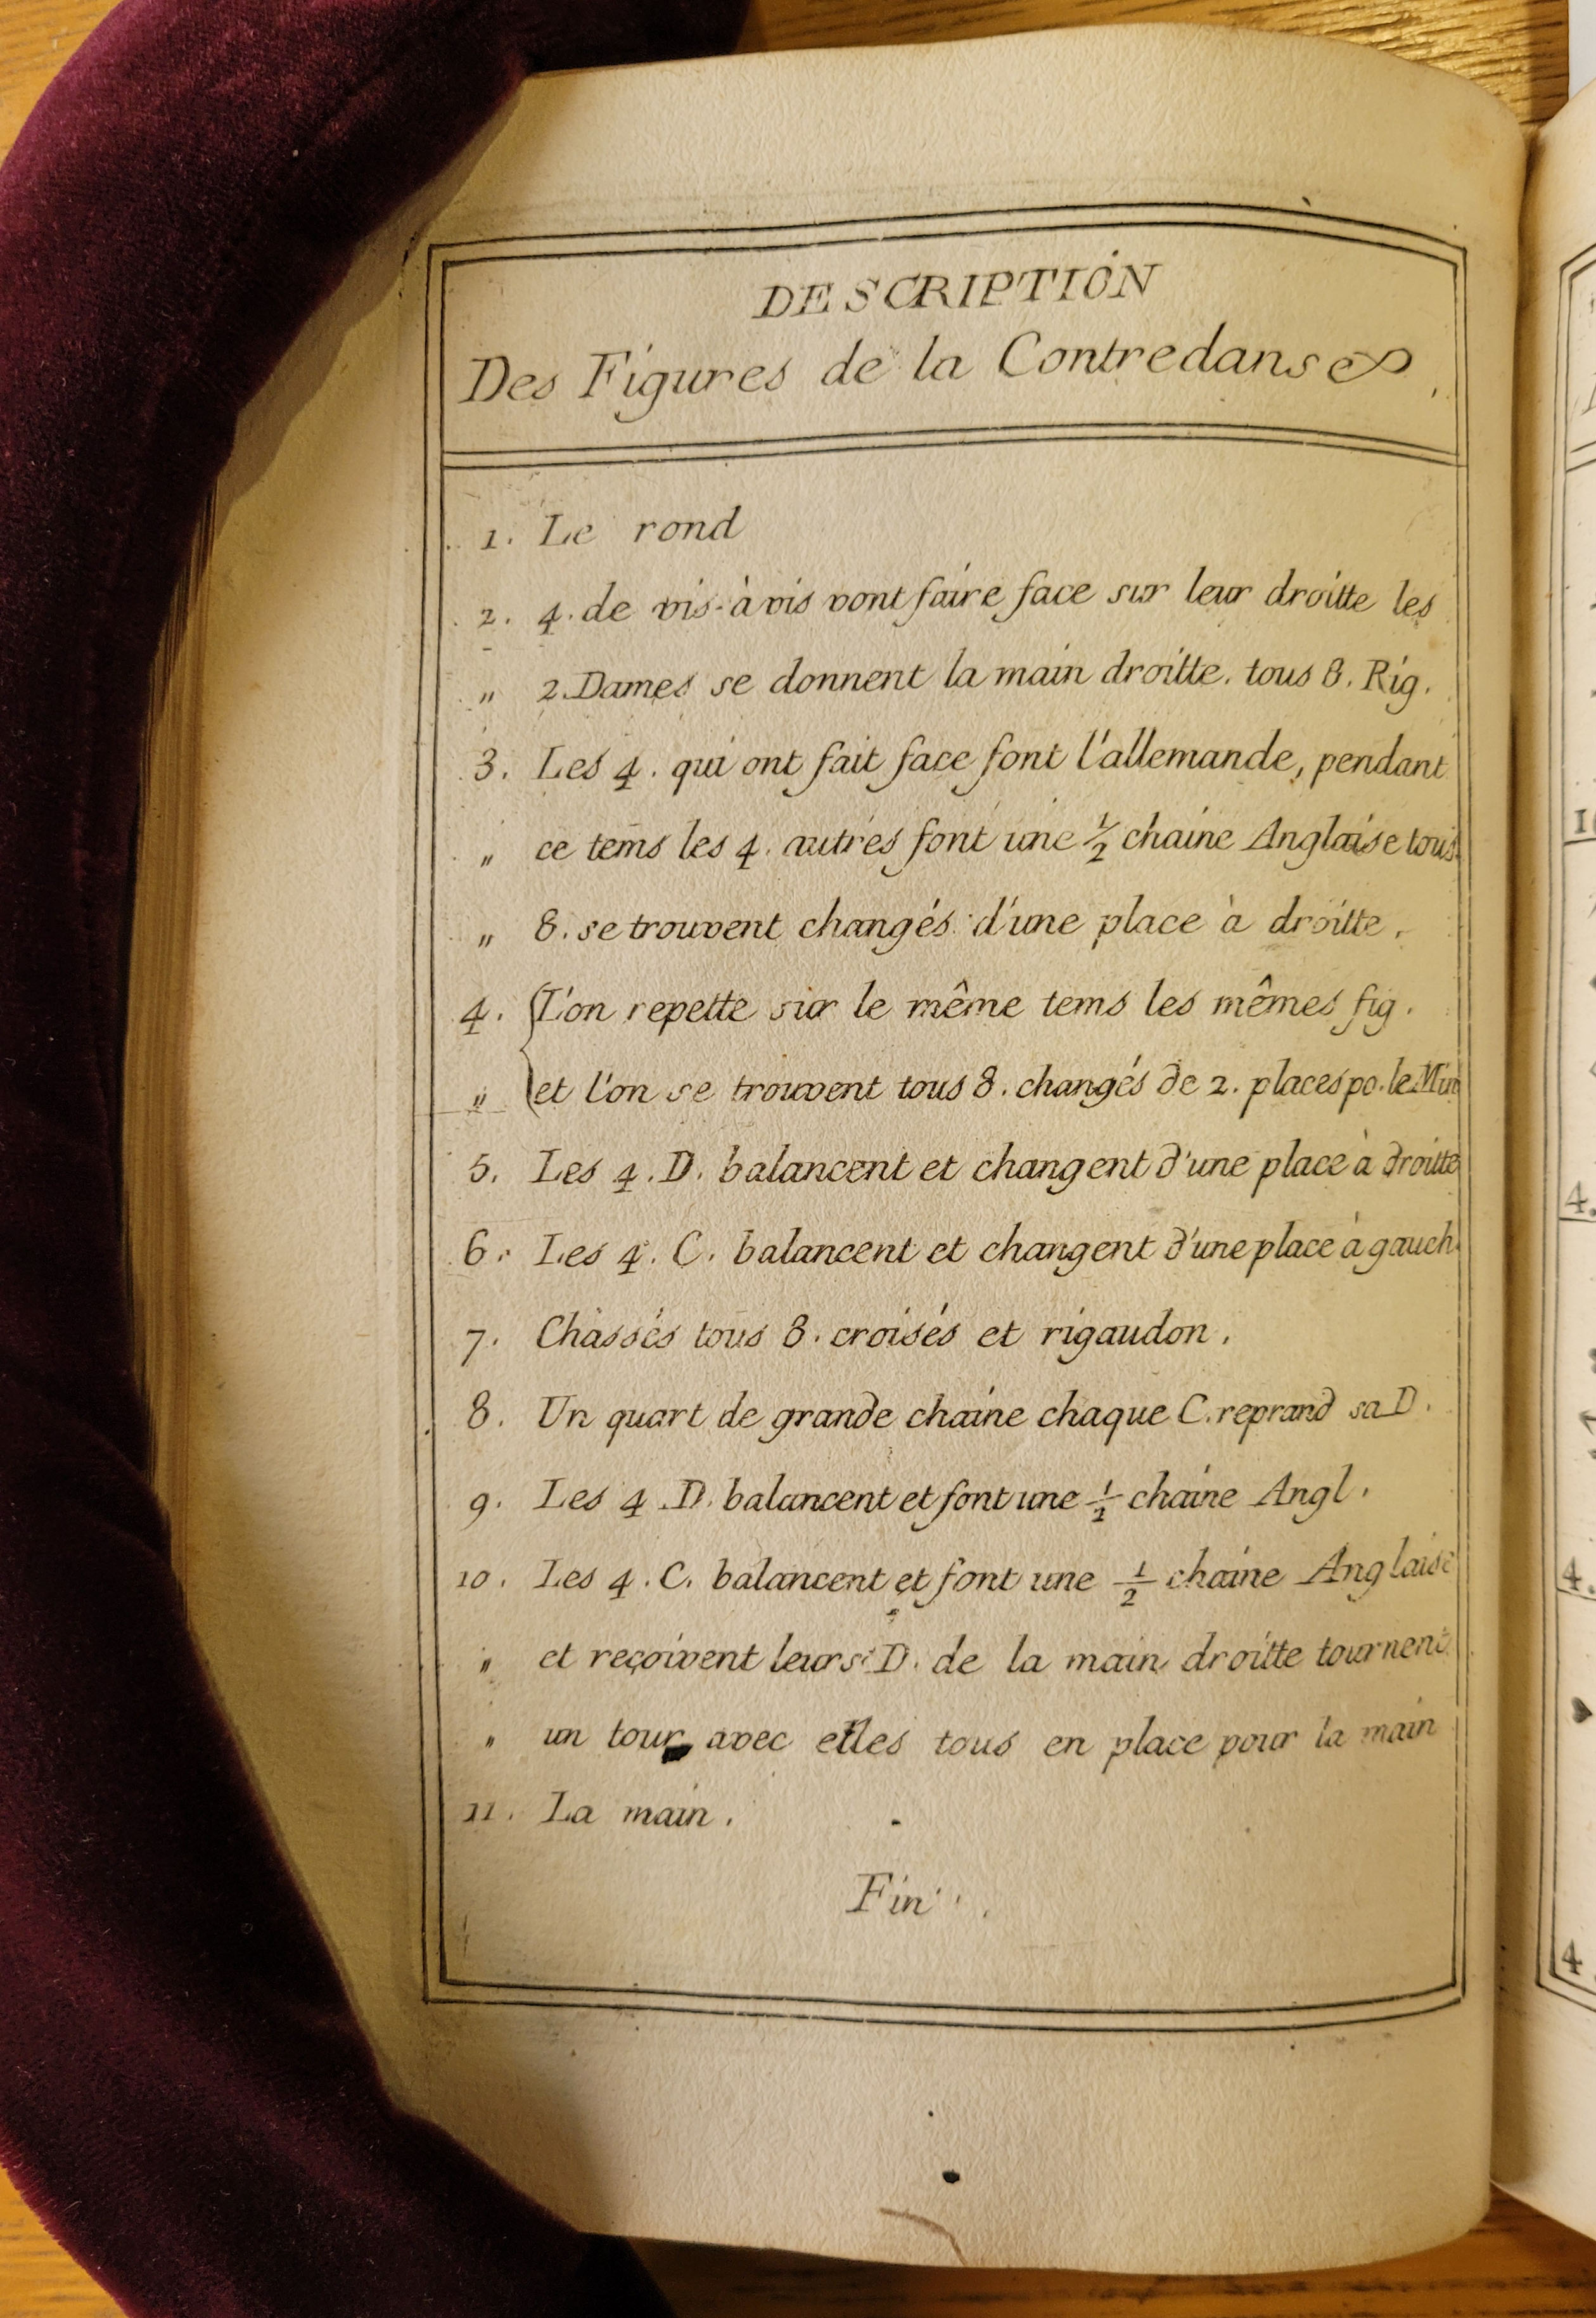 DESCRIPTION
Des Figures de la Contredanse
1. Le rond
2. 4. de vis-à vis vont faire face sur leur droitte les
" 2. Dames se donnent la main droitte. tous 8. Rig.
3. Les 4. qui ont fait face font l'allemande, pendant
" ce tems les 4. autres font une 1/2 chaine Anglaise tous
" 8. se trouvent changés d'une place à droitte.
4. { L'on repette sur le même tems les mêmes fig.
" et l'on se trouvent tous 8. changés de 2. places po. le Min
5. Les 4. D. balancent et changent d'une place à droitte
6. Les 4. C. balancent et changent d'une place à gauch.
7. Chassés tous 8. croisés et rigaudon.
8. Un quart de grande chaine chaque C. reprand sa D.
9. Les 4 D. balancent et font une 1/2 chaine Angl.
10. Les 4. C. balancent et font une 1/2 chaine Anglaise
" et reçoivent leurs D. de la main droitte tournent
" un tour avec elles tous en place pour la main
11. La main.
Fin.
4.
4.
4